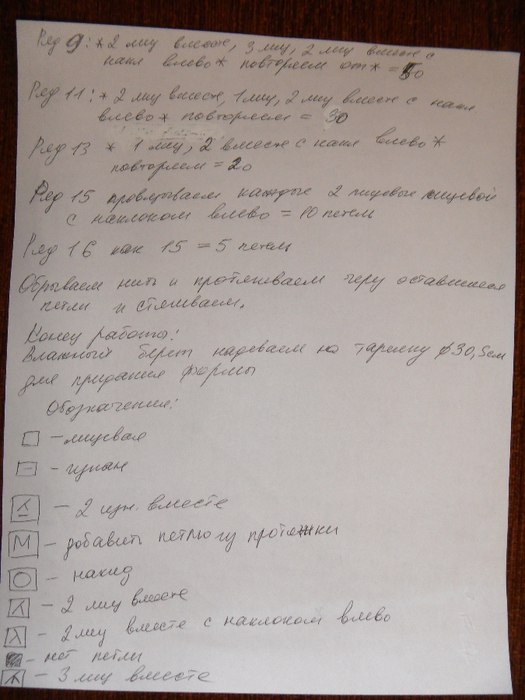 Ряд 9: * 2 лиц вместе, 3 лиц, 2 лиц вместе с
накл влево * повторяем от * = 50
Ряд 11: * 2 лиц вместе, 1 лиц, 2 лиц вместе с накл
влево * повторяем = 30
Ряд 13 * 1 лиц, 2 вместе с накл влево *
повторяем = 20
Ряд 15 провязываем каждые 2 лицевые лицевой
с наклоном влево = 10 петель
Ряд 16 как 15 = 5 петель
Обрываем нить и протягиваем через оставшиеся
петли и стягиваем.
Конец работы!
Влажный берет надеваем на тарелку ø 30,5 см
для придания формы
Обозначения:
□ - лицевая
⊟ - изнан
- 2 изн. вместе
M - добавить петлю из протяжки
O - накид
- 2 лиц вместе
- 2 лиц вместе с наклоном влево
- нет петли
- 3 лиц вместе